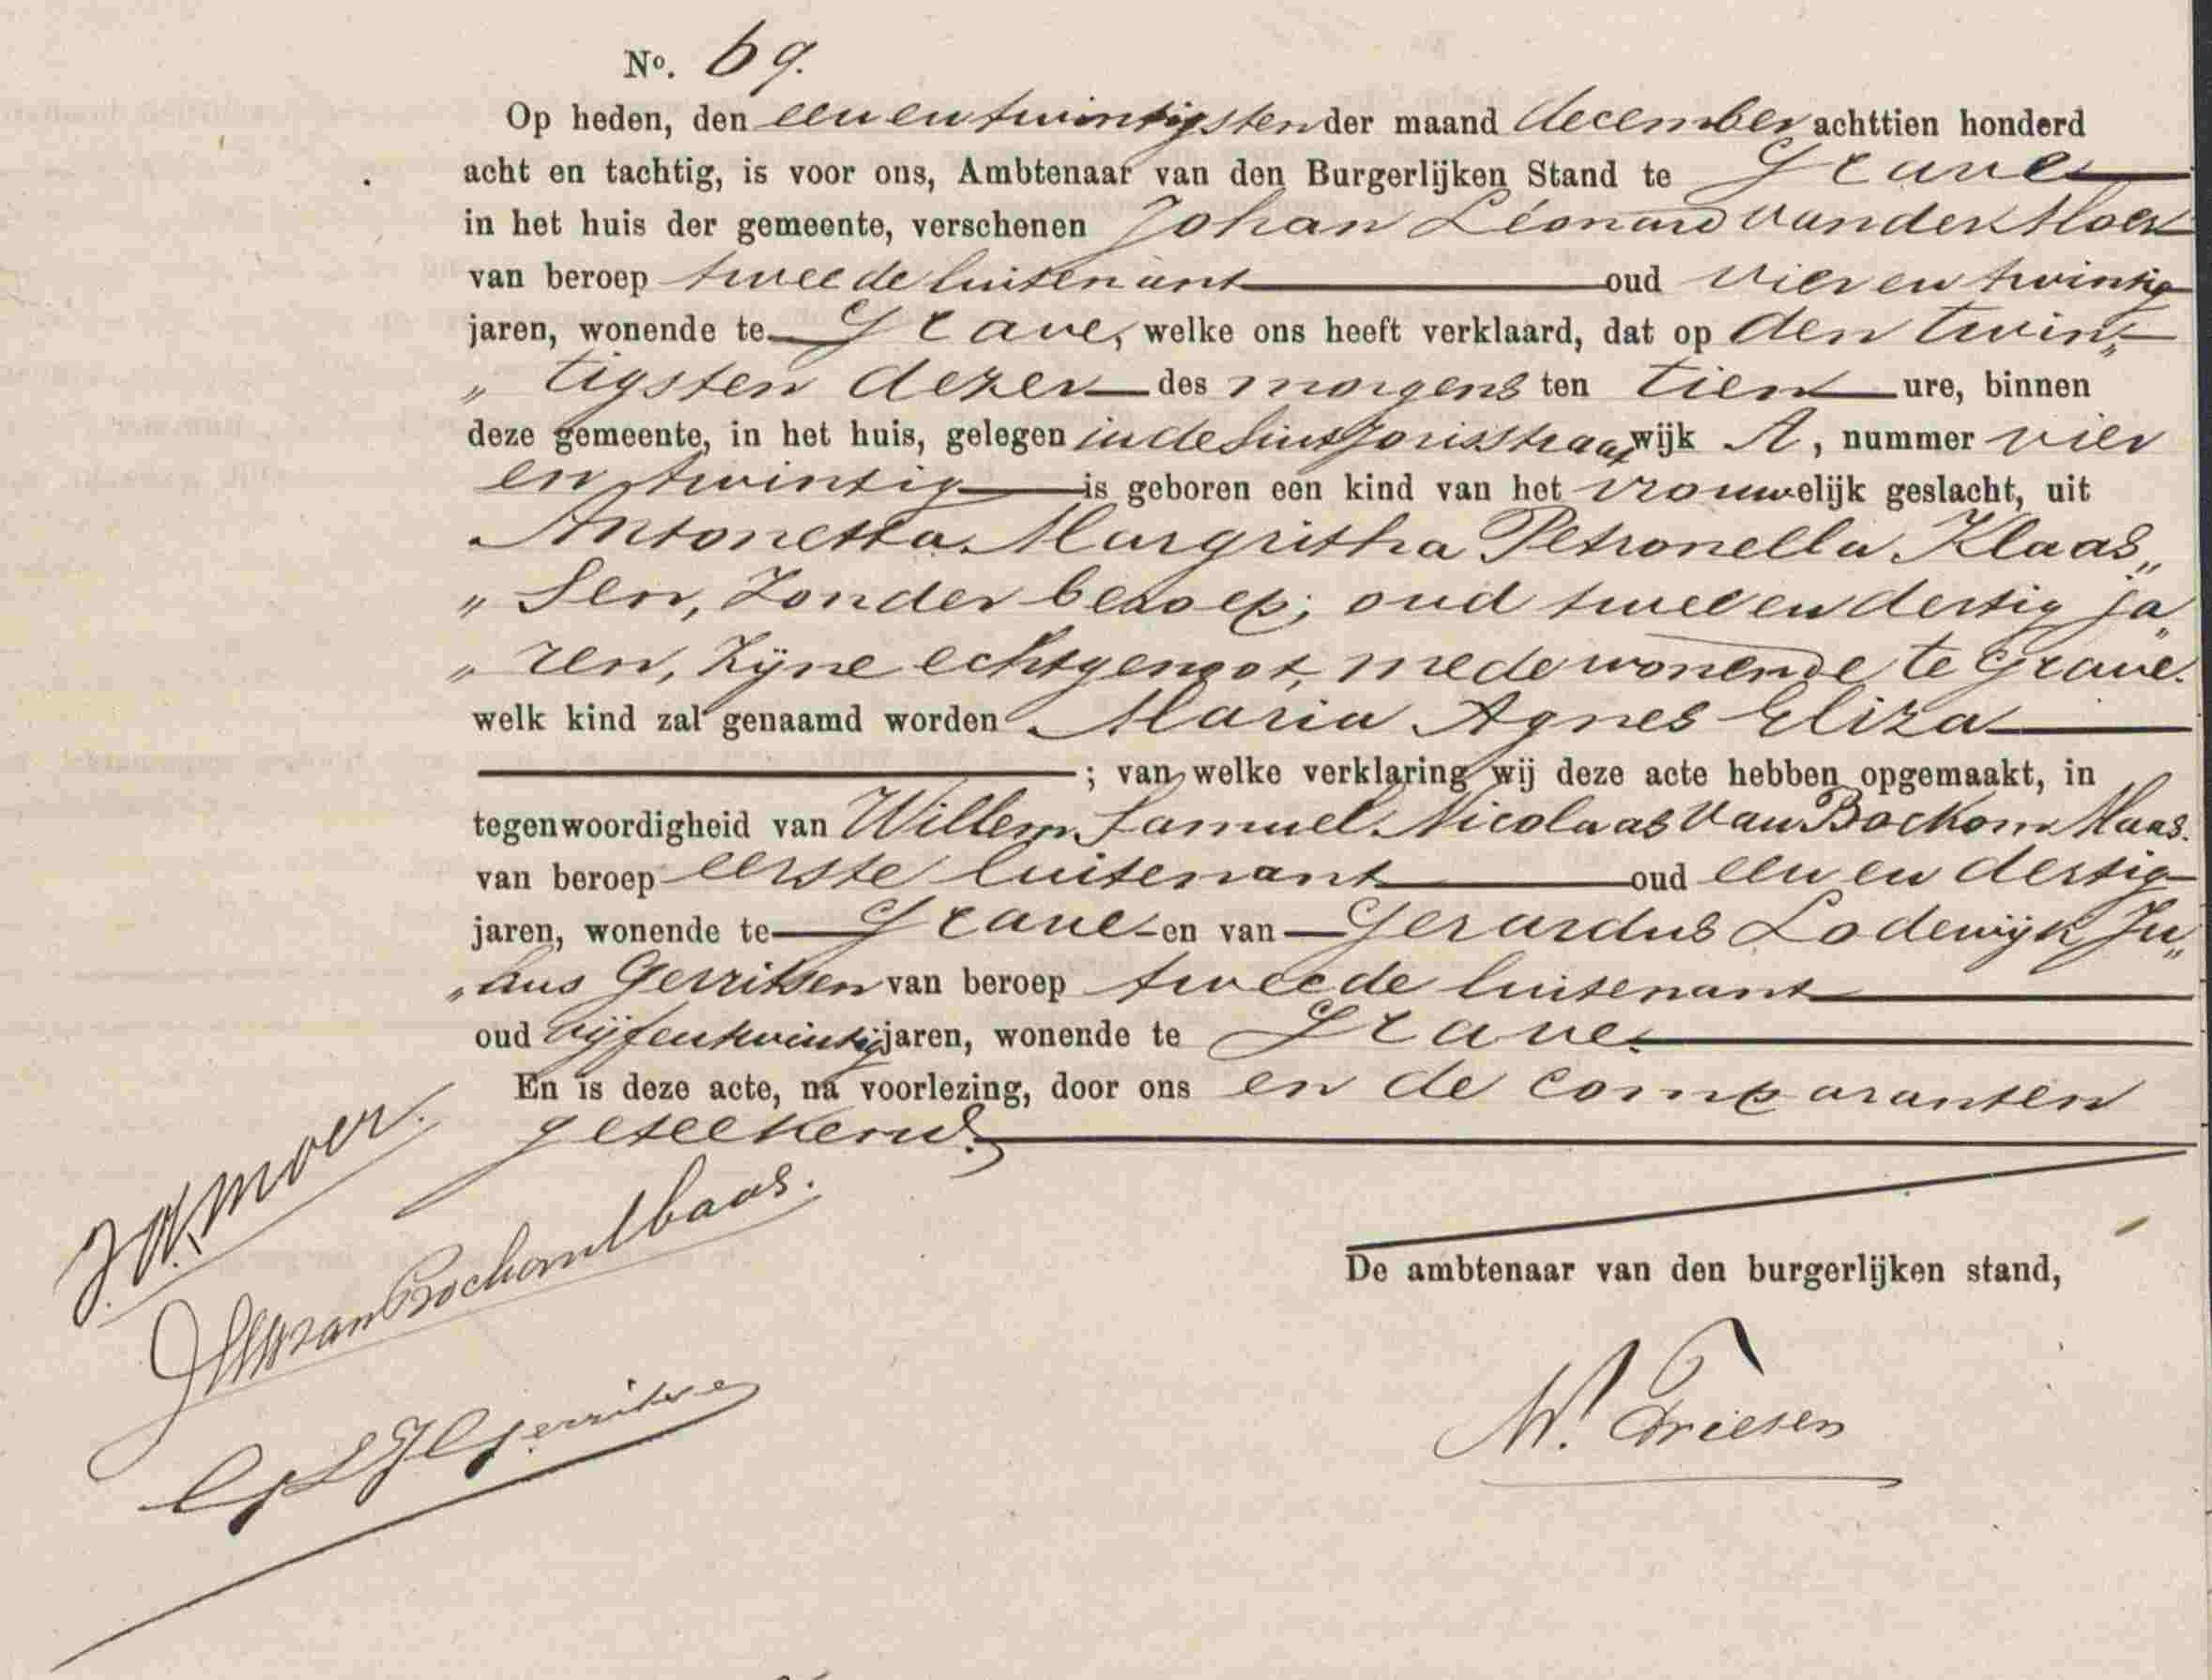 No. 69.
Op heden, den een en twintigsten der maand december achttien honderd
acht en tachtig, is voor ons, Ambtenaar van den Burgerlijken Stand te Grave
in het huis der gemeente, verschenen Johan Léonard van der Moer
van beroep tweede luitenant oud vier en twintig
jaren, wonende te Grave, welke ons heeft verklaard, dat op den twin„
„tigsten dezer des morgens ten tien ure, binnen
deze gemeente, in het huis, gelegen in de Sint Jorisstraat wijk A, nummer vier
en twintig is geboren een kind van het vrouwelijk geslacht, uit
Antonetta Margritha Petronella Klaas„
„sen, zonder beroep; oud twee en dertig ja„
„ren, zijne echtgenoot, mede wonende te Grave.
welk kind zal genaamd worden Maria Agnes Eliza
; van welke verklaring wij deze acte hebben opgemaakt, in
tegenwoordigheid van Willem Samuel Nicolaas van Bockom Maas.
van beroep eerste luitenant oud een en dertig
jaren, wonende te Grave en van Gerardus Lodewijk
Gerritsen van beroep tweede luitenant
oud vijf en twintig jaren, wonende te Grave.
En is deze acte, na voorlezing, door ons en de comparanten
geteekend.
Moer.
van Bockom Maas.
Gerritsen
De ambtenaar van den burgerlijken stand,
W. Friesen